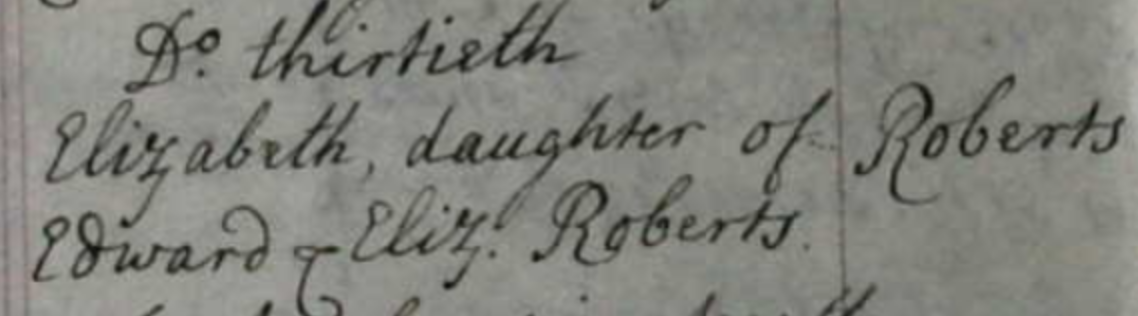 Do. thirtieth
Elizabeth, daughter of Roberts
Edward & Eliz: Roberts.